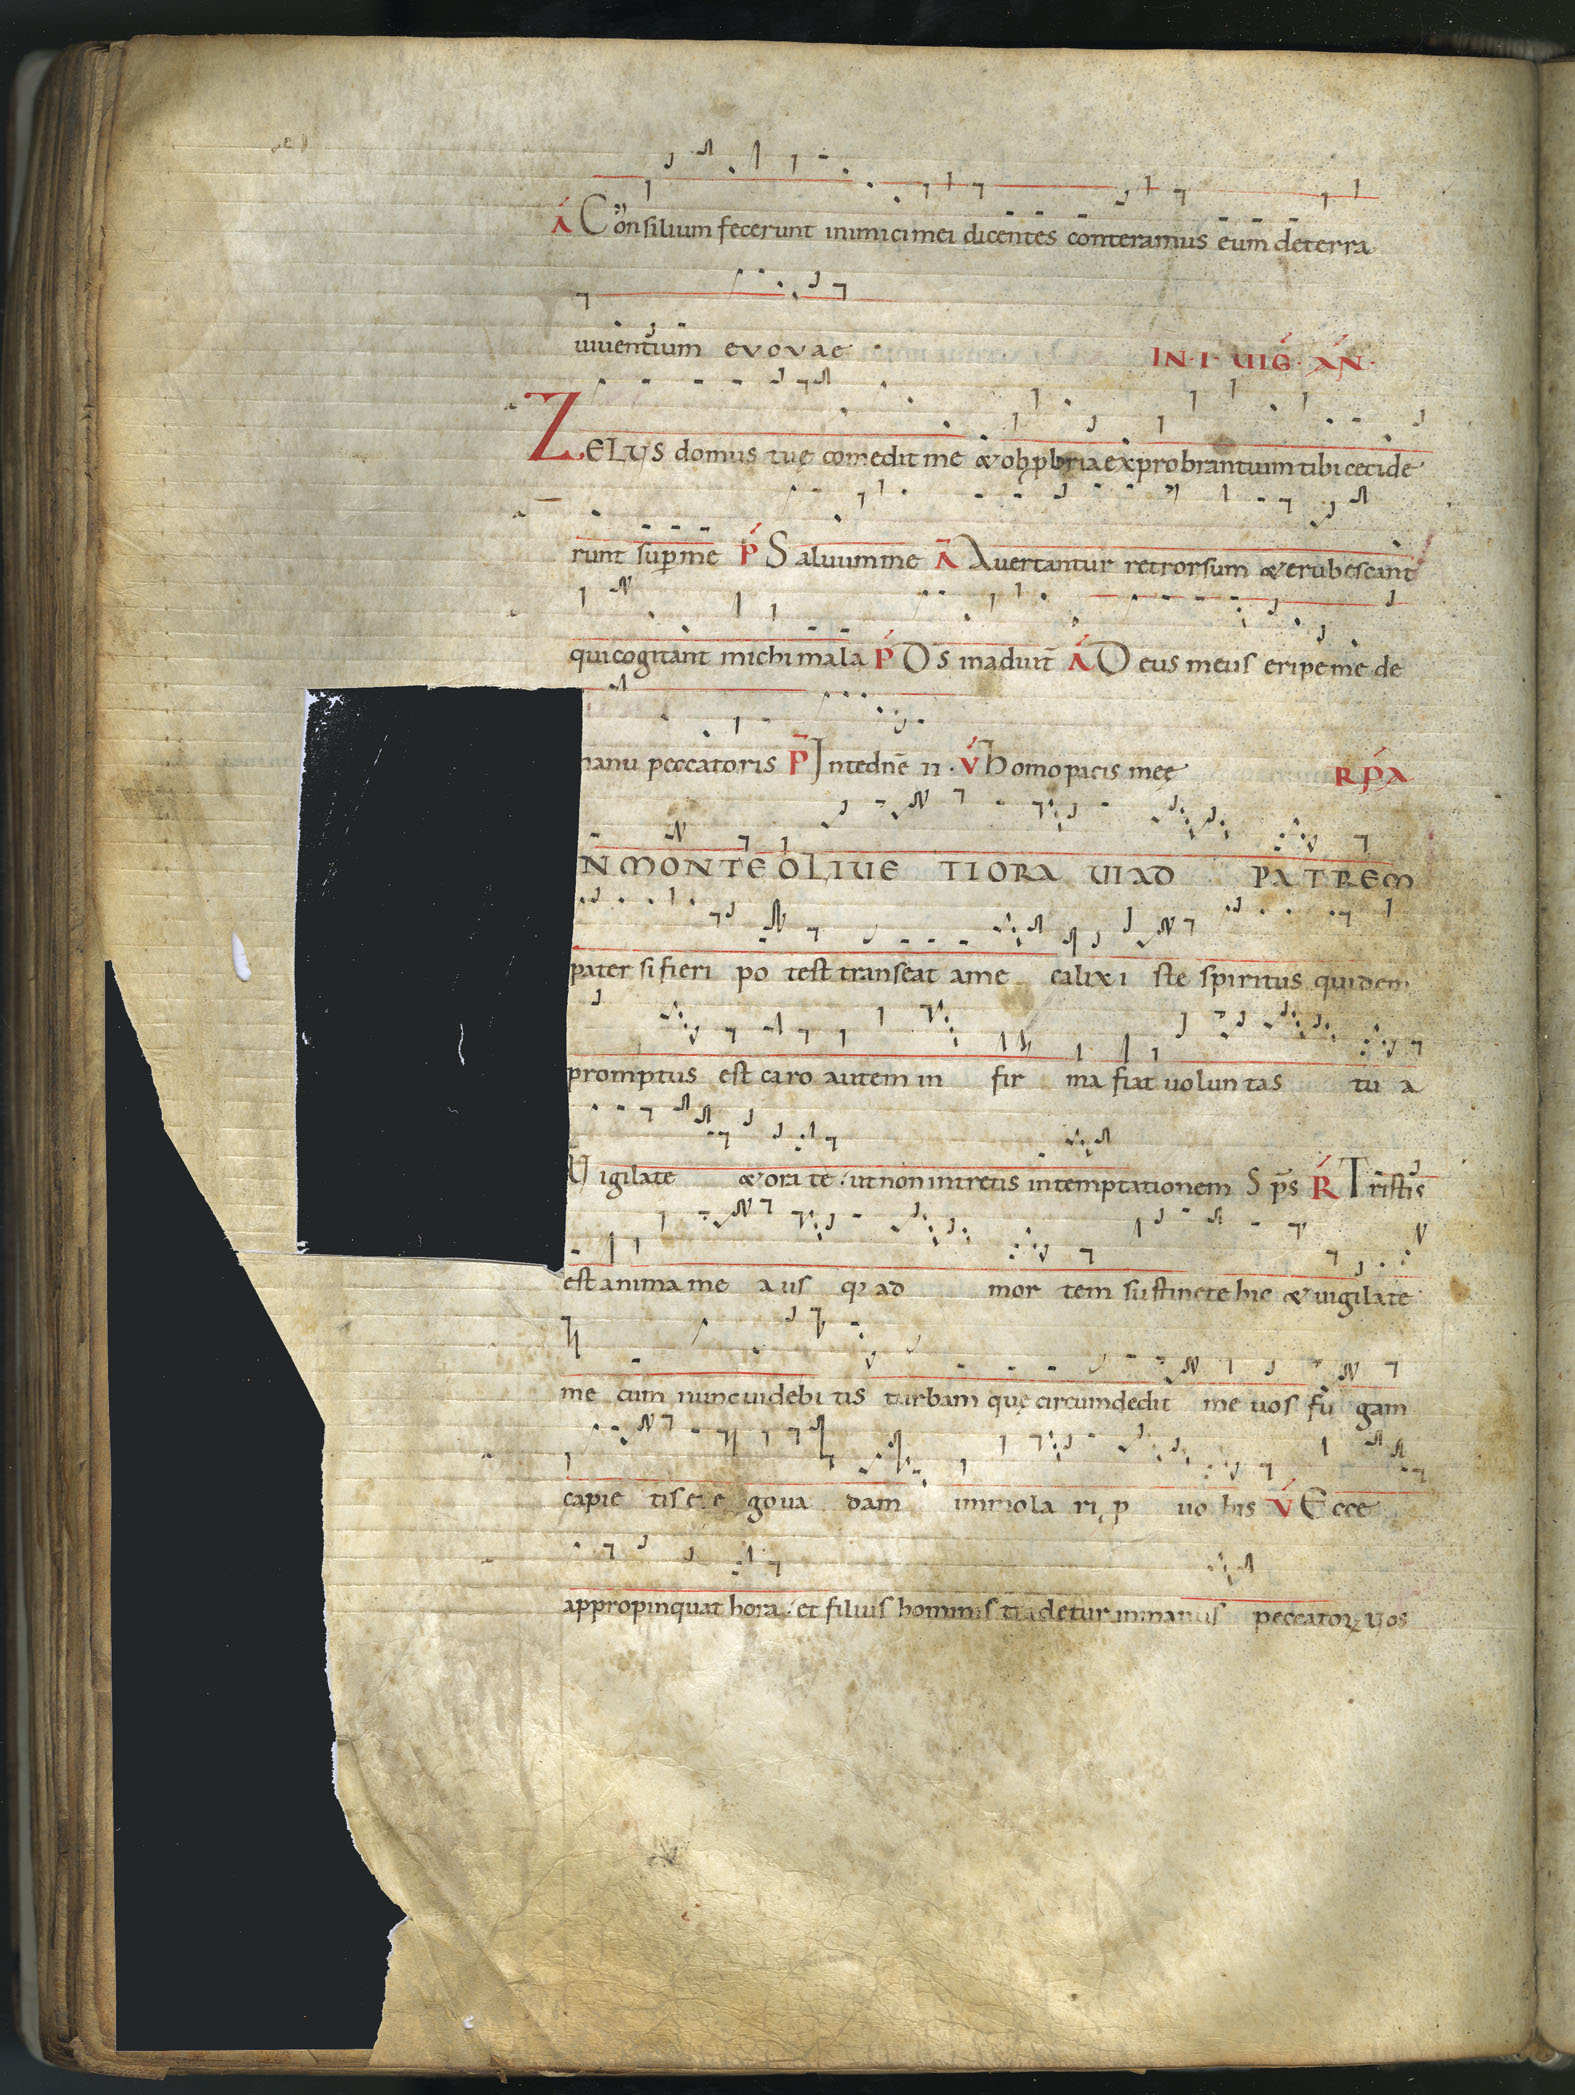 A Consilium fecerunt inimici mei dicentes conteramus eum de terra
viventium evovae IN·I·UIG·AN·
ZELUS domus tuę comedit me & obprobria exprobrantium tibi cecide
runt sup me P Saluum me A Auertantur retrorsum & erubescant
qui cogitant michi mala P DS in adiut A Deus meus eripe me de
manu peccatoris P In te dne II · V Homo pacis meę RPA
N MONTE OLIUE TI ORA UI AD PATREM
pater si fieri po test transeat a me calix i ste spiritus quidem
promptus est caro autem in fir ma fiat uolun tas tu a
Vigilate & ora te · ut non intretis in temptationem Sps R Tristis
est anima me a us q ad mor tem sustinete hic & uigilate
me cum nunc uidebi tis turbam quę circumdedit me uos fu gam
capie tis et e go ua dam immola ri p uo bis V Ecce
appropinquat hora · et filius hominis tradetur in manus peccatorꝝ Uos